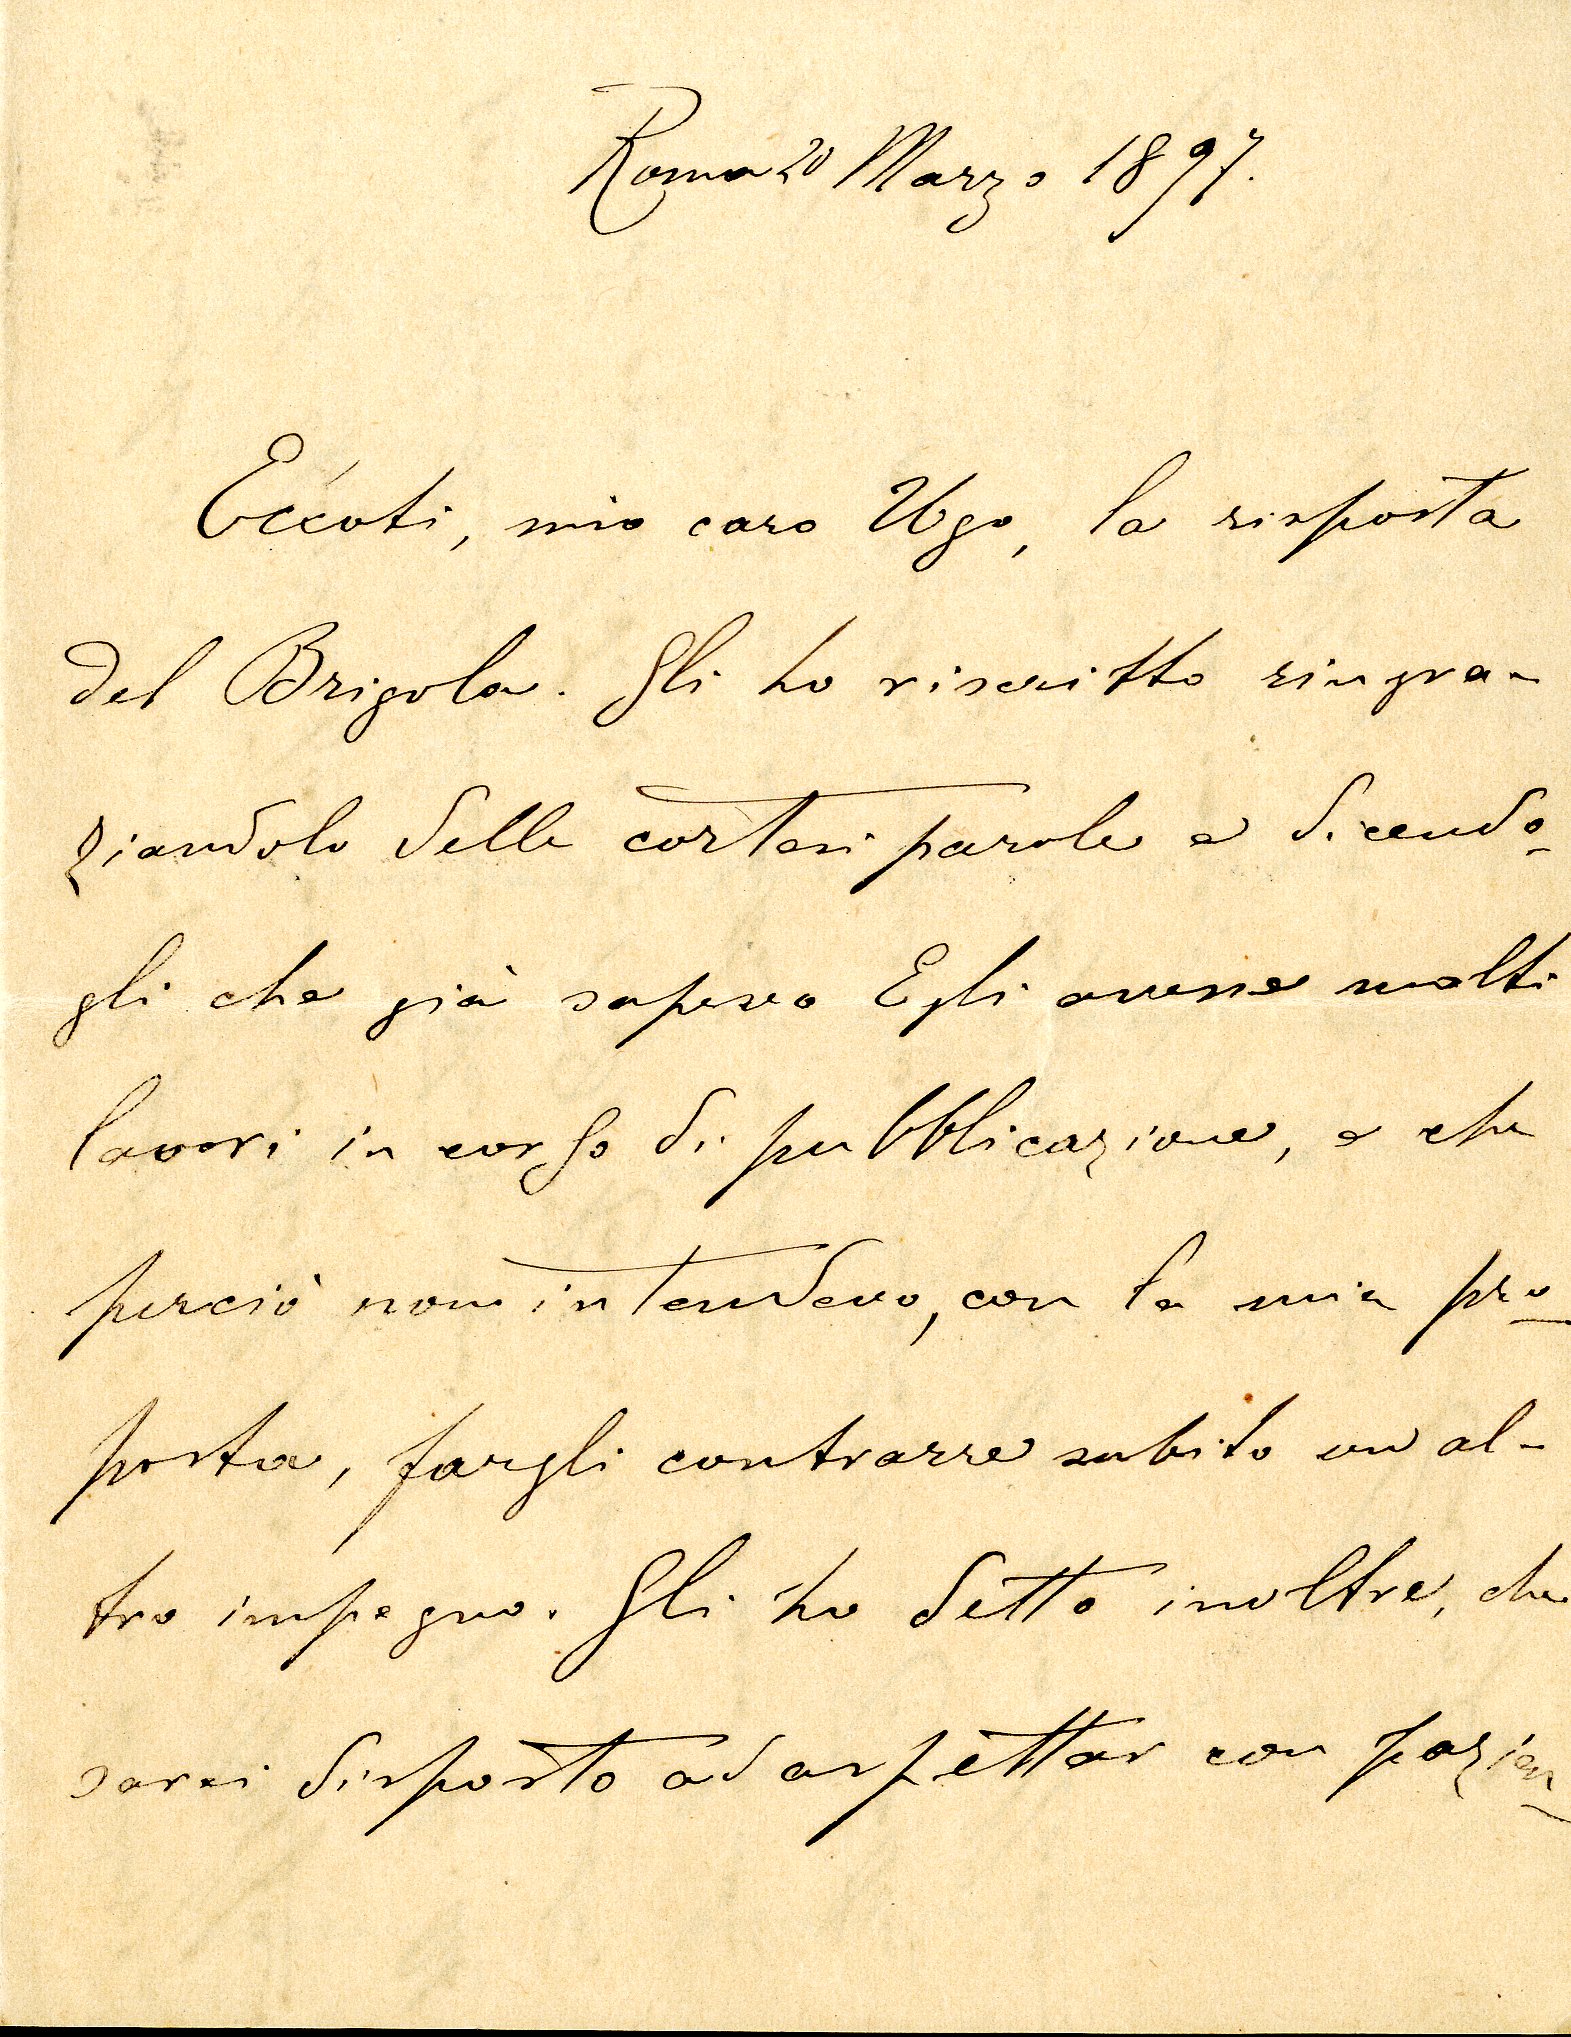 Roma 20 Marzo 1897.
Eccoti, mio caro Ugo, la risposta
del Brigola. Gli ho riscritto ringra-
ziandolo delle cortesi parole e dicendo-
gli che già sapevo Egli avesse molti
lavori in corso di pubblicazione, e che
perciò non intendevo, con la mia pro-
posta, fargli contrarre subito un al-
tro impegno. Gli ho detto inoltre, che
sarei disposto ad aspettar con pazien-